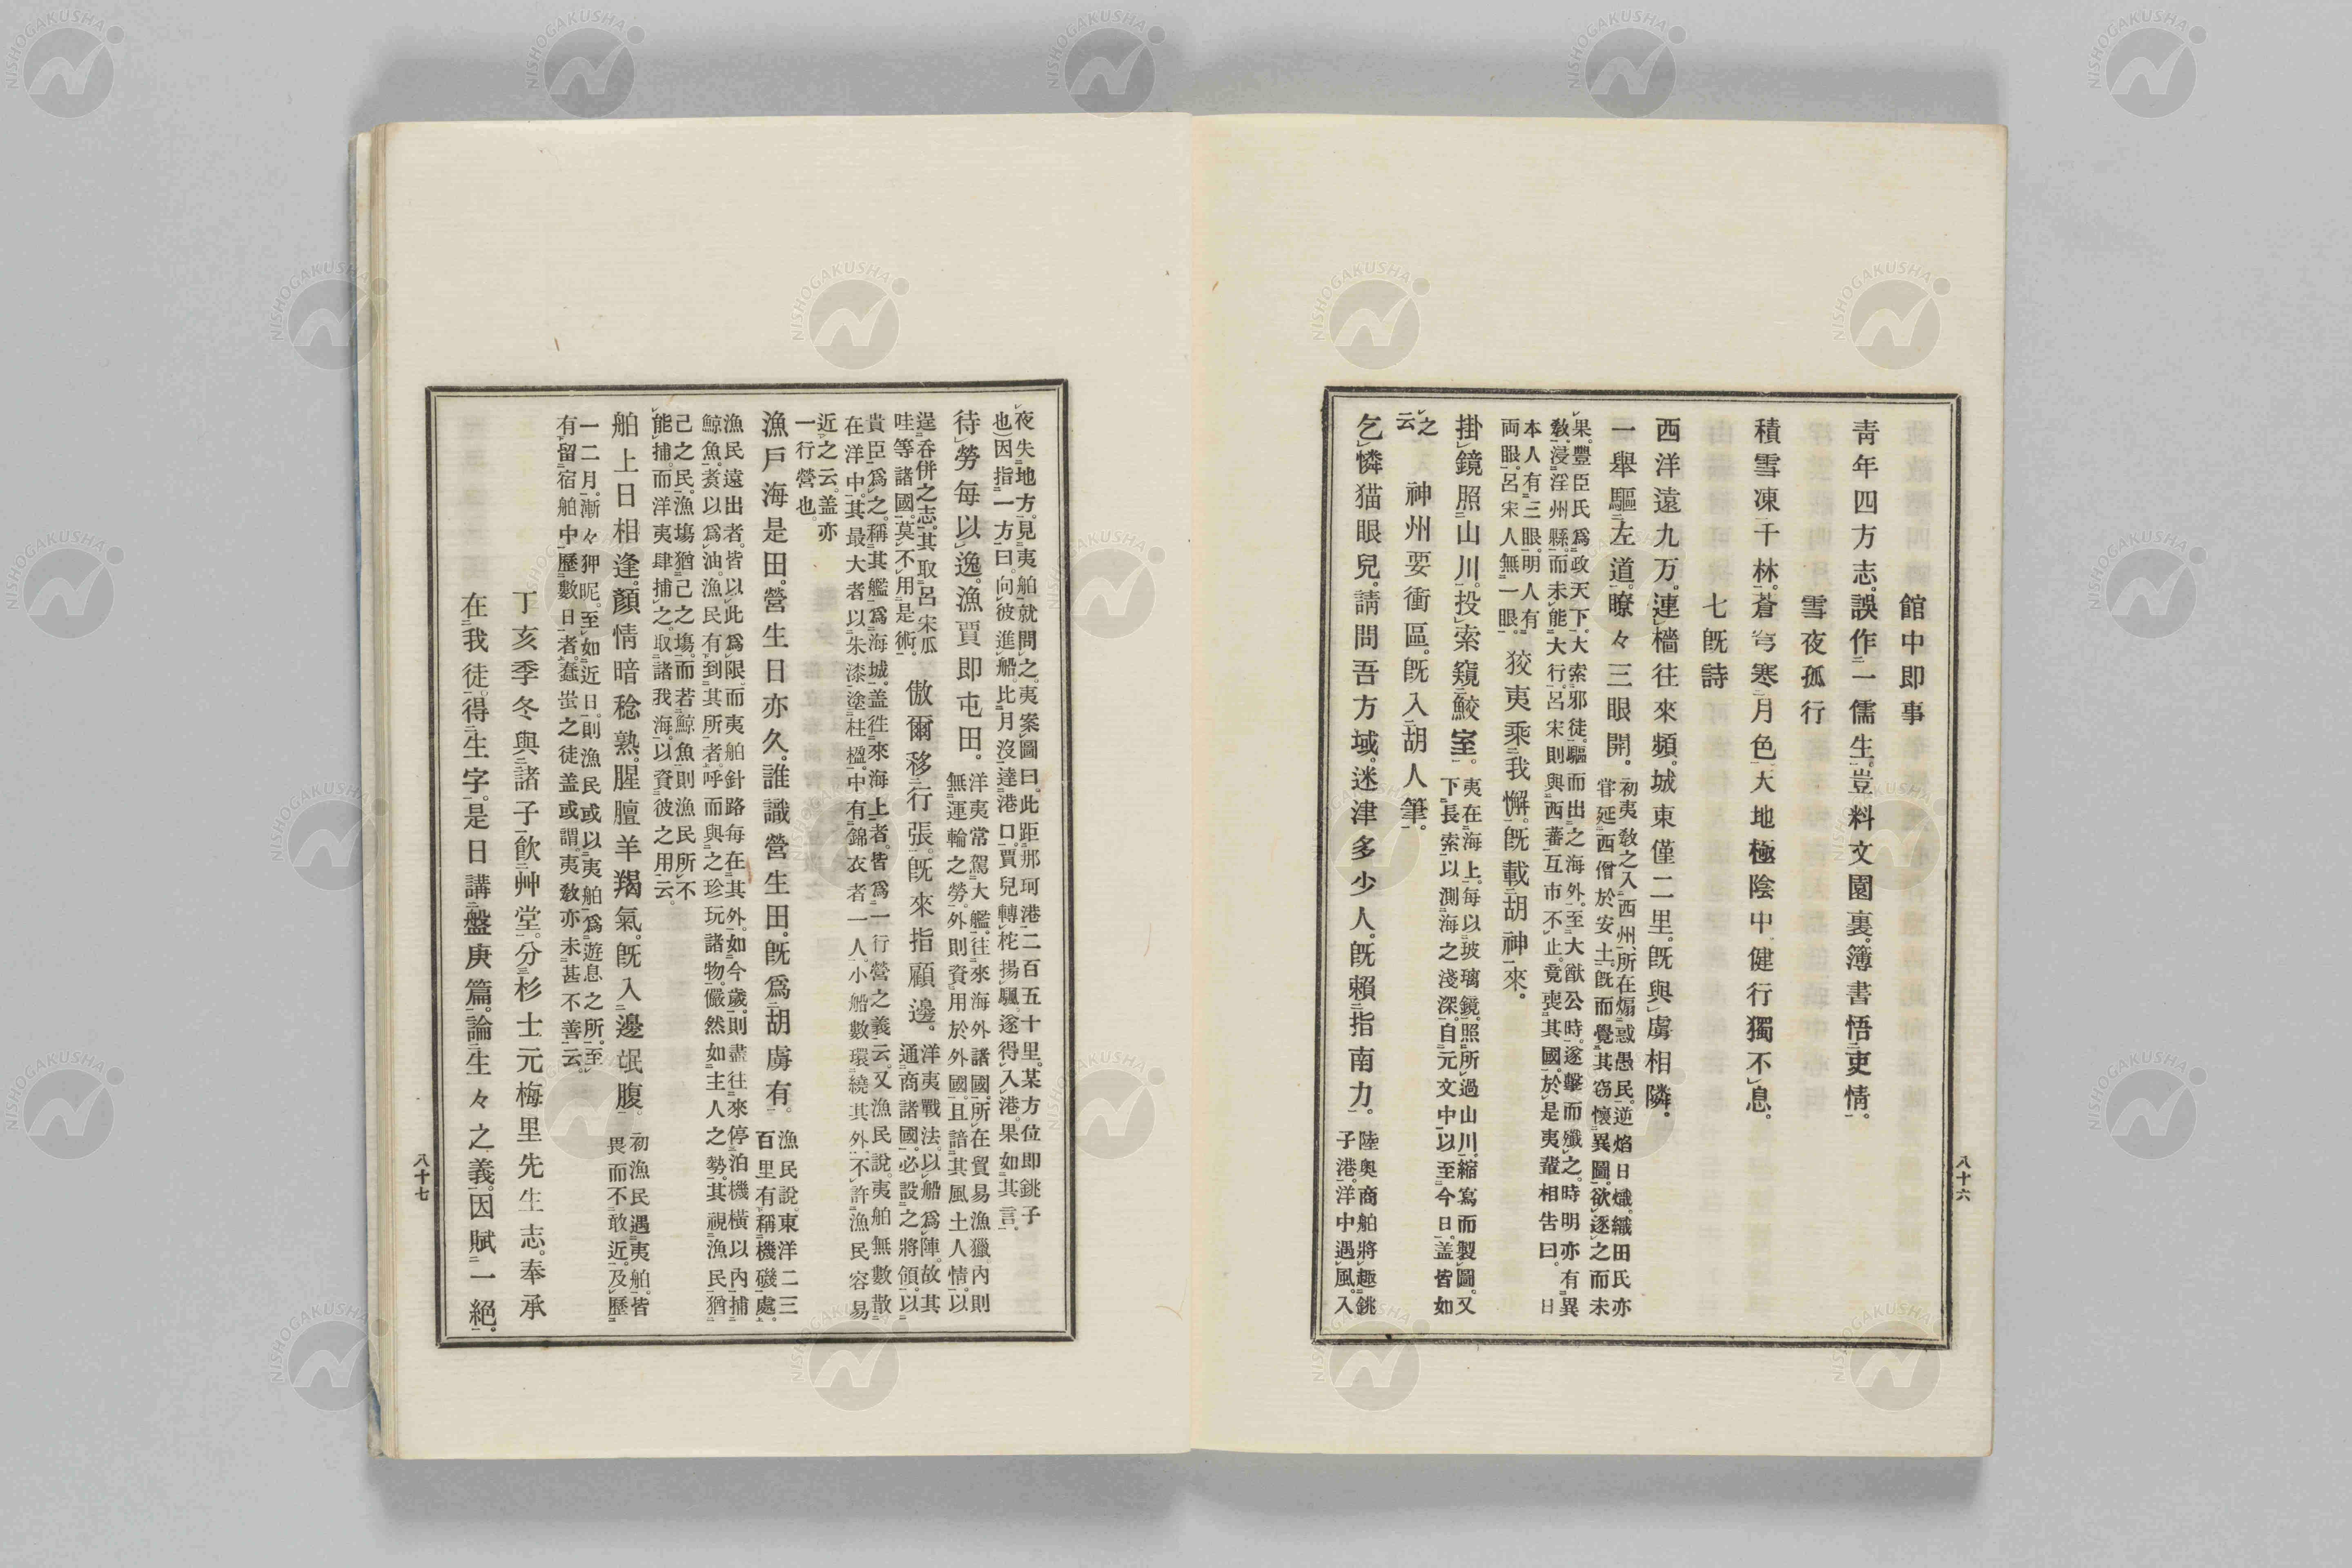 館中即事
青年四方志。誤作一儒生。豈料文園裏。簿書悟吏情。
雪夜孤行
積雪凍千林。蒼穹寒月色。天地極陰中。健行獨不息。
七既詩
西洋遠九万。連檣往來頻。城東僅二里。既與虜相隣。
一舉驅左道。瞭々三眼開。初夷敎之入西州、所在煽惑愚民。逆焰日熾。織田氏亦
甞延西僧於安土。既而覺其窃懷異圖。欲逐之而未
果。豐臣氏爲政天下。大索邪徒。驅而出之海外。至大猷公時。遂擊而殲之。時明亦有異
敎。浸淫州縣。而未能大行。呂宋則與西蕃互市不止。竟喪其國。於是夷輩相告曰。日
本人有三眼。明人有
両眼。呂宋人無一眼。狡夷乘我懈。既載胡神來。
掛鏡照山川。投索窺鮫室。夷在海上。每以玻璃鏡。照所過山川。縮寫而製圖。又
下長索。以測海之淺深。自元文中。以至今日。盖皆如
之
云神州要衝區。既入胡人筆。
乞憐猫眼兒。請問吾方域。迷津多少人。既賴指南力。陸奥商舶將趣銚
子港。洋中遇風。入
八十六
夜失地方。見夷舶就問之。夷案圖曰。此距那珂港二百五十里。某方位即銚子
也)因指一方曰。向彼進船。比月沒達港口。賈兒轉柁揚颿。遂得入港。果如其言。
待勞每以逸。漁賈即屯田。洋夷常駕大艦。往來海外諸國。所在貿易漁獵。內則
無運輸之勞。外則資用於外國。且諳其風土人情。以
逞呑併之志。其取呂宋瓜
哇等諸國。莫不用是術。傲爾移行張。既來指顧邊。洋夷戰法。以船爲陣。故其
通商諸國。必設之將領。以
貴臣爲之。稱其艦爲海城。盖徃來海上者。皆爲一行營之義云。又漁民說。夷舶無數散
在洋中。其最大者以朱漆塗柱楹。中有錦衣者一人。小船數環繞其外。不許漁民容易
近之云。盖亦
一行營也。
漁戶海是田。營生日亦久。誰識營生田。既爲胡虜有。漁民說。東洋二三
百里有稱機磯處。
漁民遠出者。皆以此爲限。而夷舶針路每在其外。如今歲。則盡往來停泊機橫以內捕
鯨魚。煑以爲油。漁民有到其所者。呼而與之珍玩諸物。儼然如主人之勢。其視漁民猶
己之民。漁塲猶己之塲。而若鯨魚則漁民所不
能捕。而洋夷肆捕之。取諸我海。以資彼之用云。
舶上日相逢。顏情暗稔熟。腥膻羊羯氣。既入邊氓腹。初漁民遇夷舶。皆
畏而不敢近。及歷
一二月。漸々狎昵。至如近日。則漁民或以夷舶爲遊息之所。至
有留宿舶中歷數日者。蠢蚩之徒盖或謂。夷敎亦未甚不善云。
丁亥季冬與諸子飲艸堂。分杉士元梅里先生志。奉承
在我徒。得生字。是日講盤庚篇。論生々之義。因賦一絕。
八十七